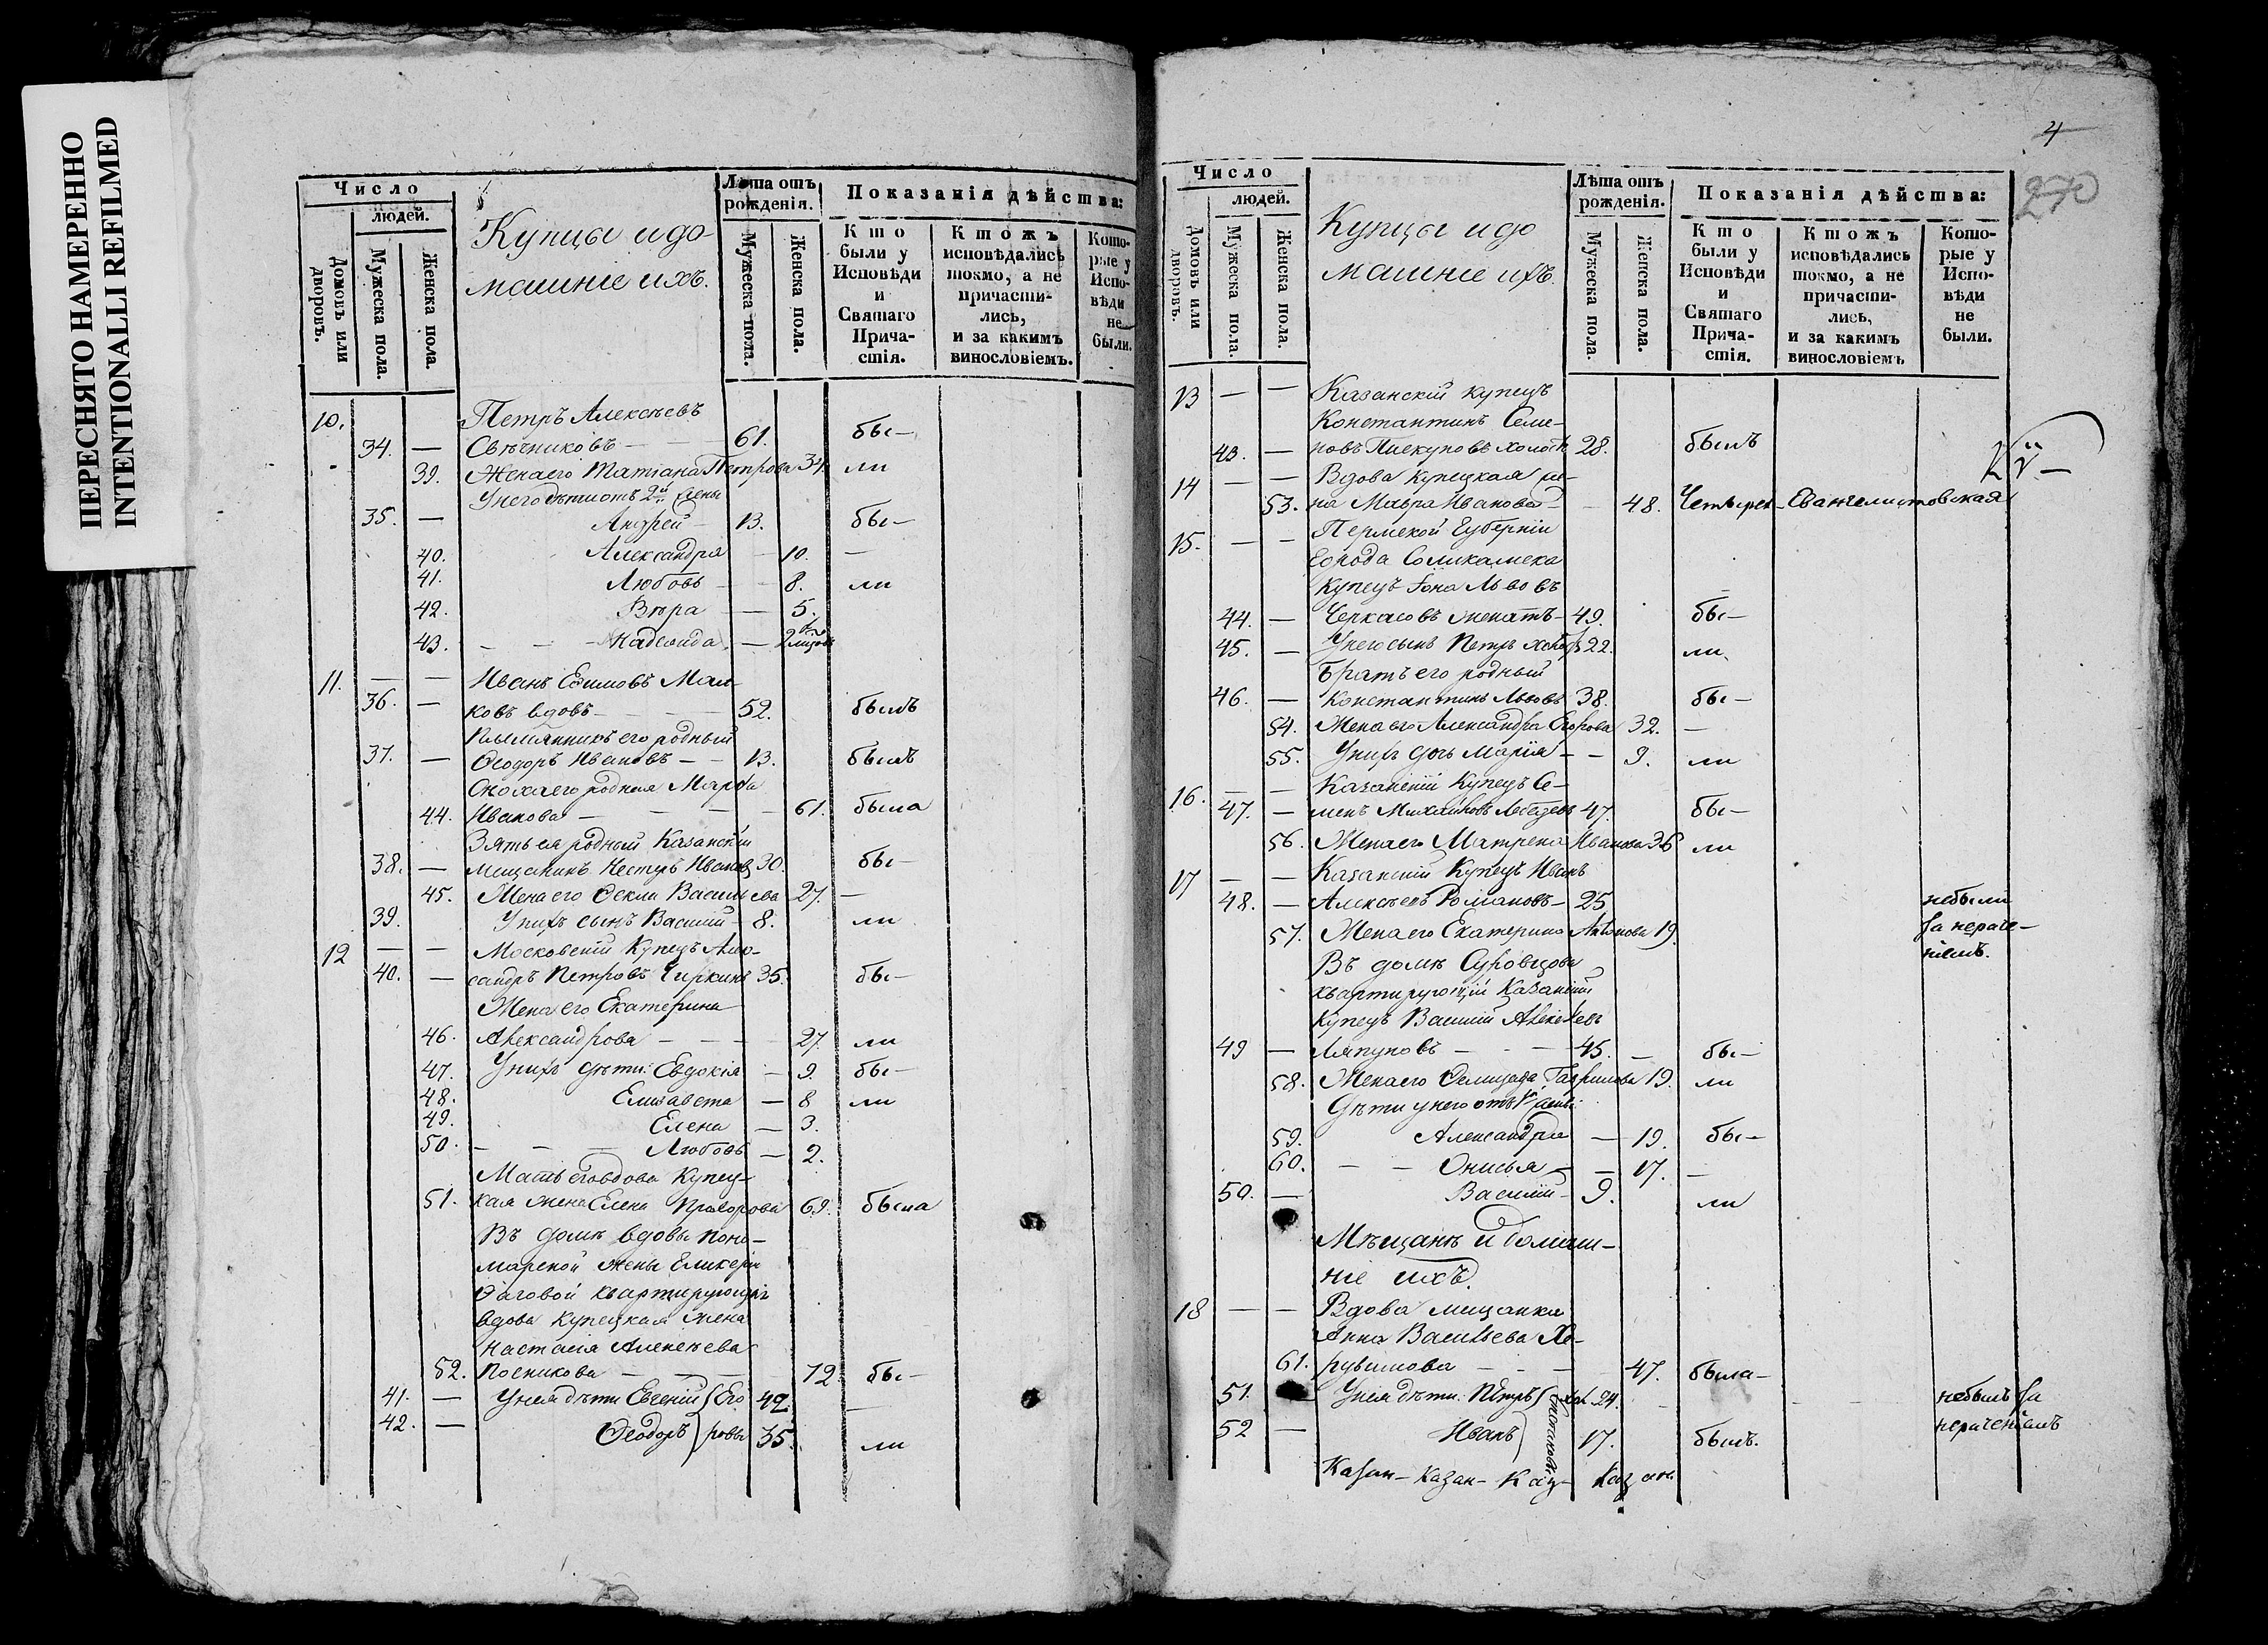 ПЕРЕСНЯТО НАМЕРЕННО
INTENTIONALLI REFILMED
Число
людей.
Домовъ или дворовъ.
Мужеска пола.
Женска пола.
Купцы и до-
машніе ихъ.
Лѣта отъ рожденія.
Мужеска пола.
Женска пола.
Показанія дѣйства:
Кто были у Исповѣди и Святаго Прича-стія.
Ктожъ исповѣдались токмо, а не причасти-лись, и за какимъ винословіемъ.
Кото-рые у Испо-вѣди не были.
10. Петръ Алексѣевъ
34. — Свѣчниковъ — 61. бы—
39. Жена его Татіана Петрова 34. ли
У него дѣти отъ 2й жены
35. — Андрей — 13. бы—
40. Александра — 10. —
41. Любовь — 8. ли
42. Вѣра — 5.
43. — — Надежда — 2
11. — — Иванъ Ефимовъ Мал-
36. — ковъ вдовъ — 52. былъ
Племянникъ его родный
37. — Ѳеодоръ Ивановъ — — 13. былъ
Сноха его родная Марѳа
44. Иванова — — — 61. была
Зять ея родный Казанскій
38. — мещанинъ Нестеръ Ивановъ 30. бы—
45. Жена его Ѳекла Васильева 27. —
39. У нихъ сынъ Василій — 8. ли
12 — — Московскій Купецъ Алек-
40. — сандръ Петровъ Чиркинъ 35. бы—
Жена его Екатерина
46. Александрова — — — 27. ли
47. У нихъ дѣти: Евдокія — 9. бы—
48. Елизавета — 8 ли
49. Елена — 3.
50. — — — Любовь — 2.
Мать его вдова Купец-
51. кая жена Елена 69. была
Въ домѣ вдовы поно-
марской жены Гликеріи
квартирующія
вдова Купецкая жена
Настасія Алексѣева
52. Посникова — — — 72. бы—
41. — У нея дѣти Евгеній (Его 42. —
42. — Ѳеодоръ) ровы 35. ли
4
270
Число
людей.
Домовъ или дворовъ.
Мужеска пола.
Женска пола.
Купцы и до
машніе ихъ.
Лѣта отъ рожденія.
Мужеска пола.
Женска пола.
Показанія дѣйства:
Кто были у Исповѣди и Святаго Прича-стія.
Ктожъ исповѣдались токмо, а не причасти-лись, и за какимъ винословіемъ
Кото-рые у Испо-вѣди не были.
13 — — Казанскій купецъ
Константинъ Семе-
43. — новъ холостъ 28. былъ
14 — — Вдова купецкая же-
53. на Мавра Иванова — — 48. Четырех- Евангелистовская
15. — — Пермской Губерніи
города Соликамска
Купецъ Іона Львовъ
44. — Черкасовъ женатъ — 49. бы—
45. — У него сынъ Петръ холостъ 22. ли
Братъ его родный
46. — Константинъ Львовъ 38. бы—
54. Жена его Александра Егорова 32. —
55. У нихъ дочь Марія — — 9. ли
16. — — Казанскій Купецъ Се-
47. — менъ Михайловъ Лебедевъ 47. бы—
56. Жена его Матрена Иванова 36 ли
17 — — Казанскій Купецъ Иванъ
48. — Алексѣевъ Романовъ — 25 небыли
57. Жена его Екатерина Антонова 19. за нераче-
Въ домѣ Суровцова ніемъ.
квартирующій Казанскій
Купецъ Василій Алексѣевъ
49 — Ляпуновъ — — — 45. — бы—
58. Жена его Гаврилова 19. ли
Дѣти у него отъ 1й жены:
59. Александра — 19. бы—
60. — — Онисья — — 17. —
50. — Василій — 9. ли
Мѣщанѣ и домаш-
ніе ихъ.
18 — — Вдова мещанка
Анна Васильева Хе-
61. рувимова — — — 47. была —
51. У нея дѣти: Петръ ( хол. 24. небылъ за
52 — Иванъ ) 17. былъ. нераченіемъ
Казан— Казан— Каз— Казан.